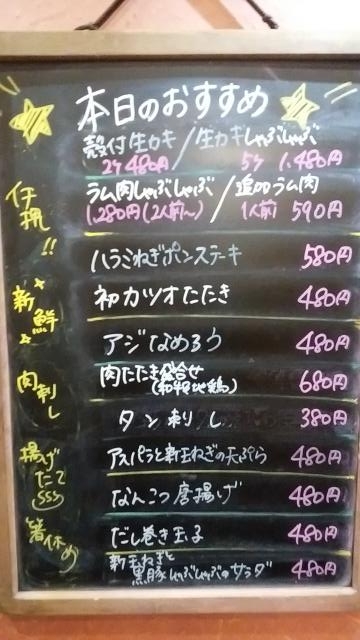 本日のおすすめ
殻付生カキ / 生カキしゃぶしゃぶ
2ケ 480円 5ケ 1,480円
ラム肉しゃぶしゃぶ / 追加ラム肉
1,280円(2人前〜) / 1人前 590円
ハラミねぎポンステーキ 580円
新鮮
初カツオたたき 480円
アジなめろう 480円
肉刺し
肉たたき盛合せ 680円
タン刺し 380円
揚げたて
アスパラと新玉ねぎの天ぷら 480円
なんこつ唐揚げ 480円
箸休め
だし巻き玉子 480円
新玉ねぎと
黒豚しゃぶしゃぶのサラダ 480円